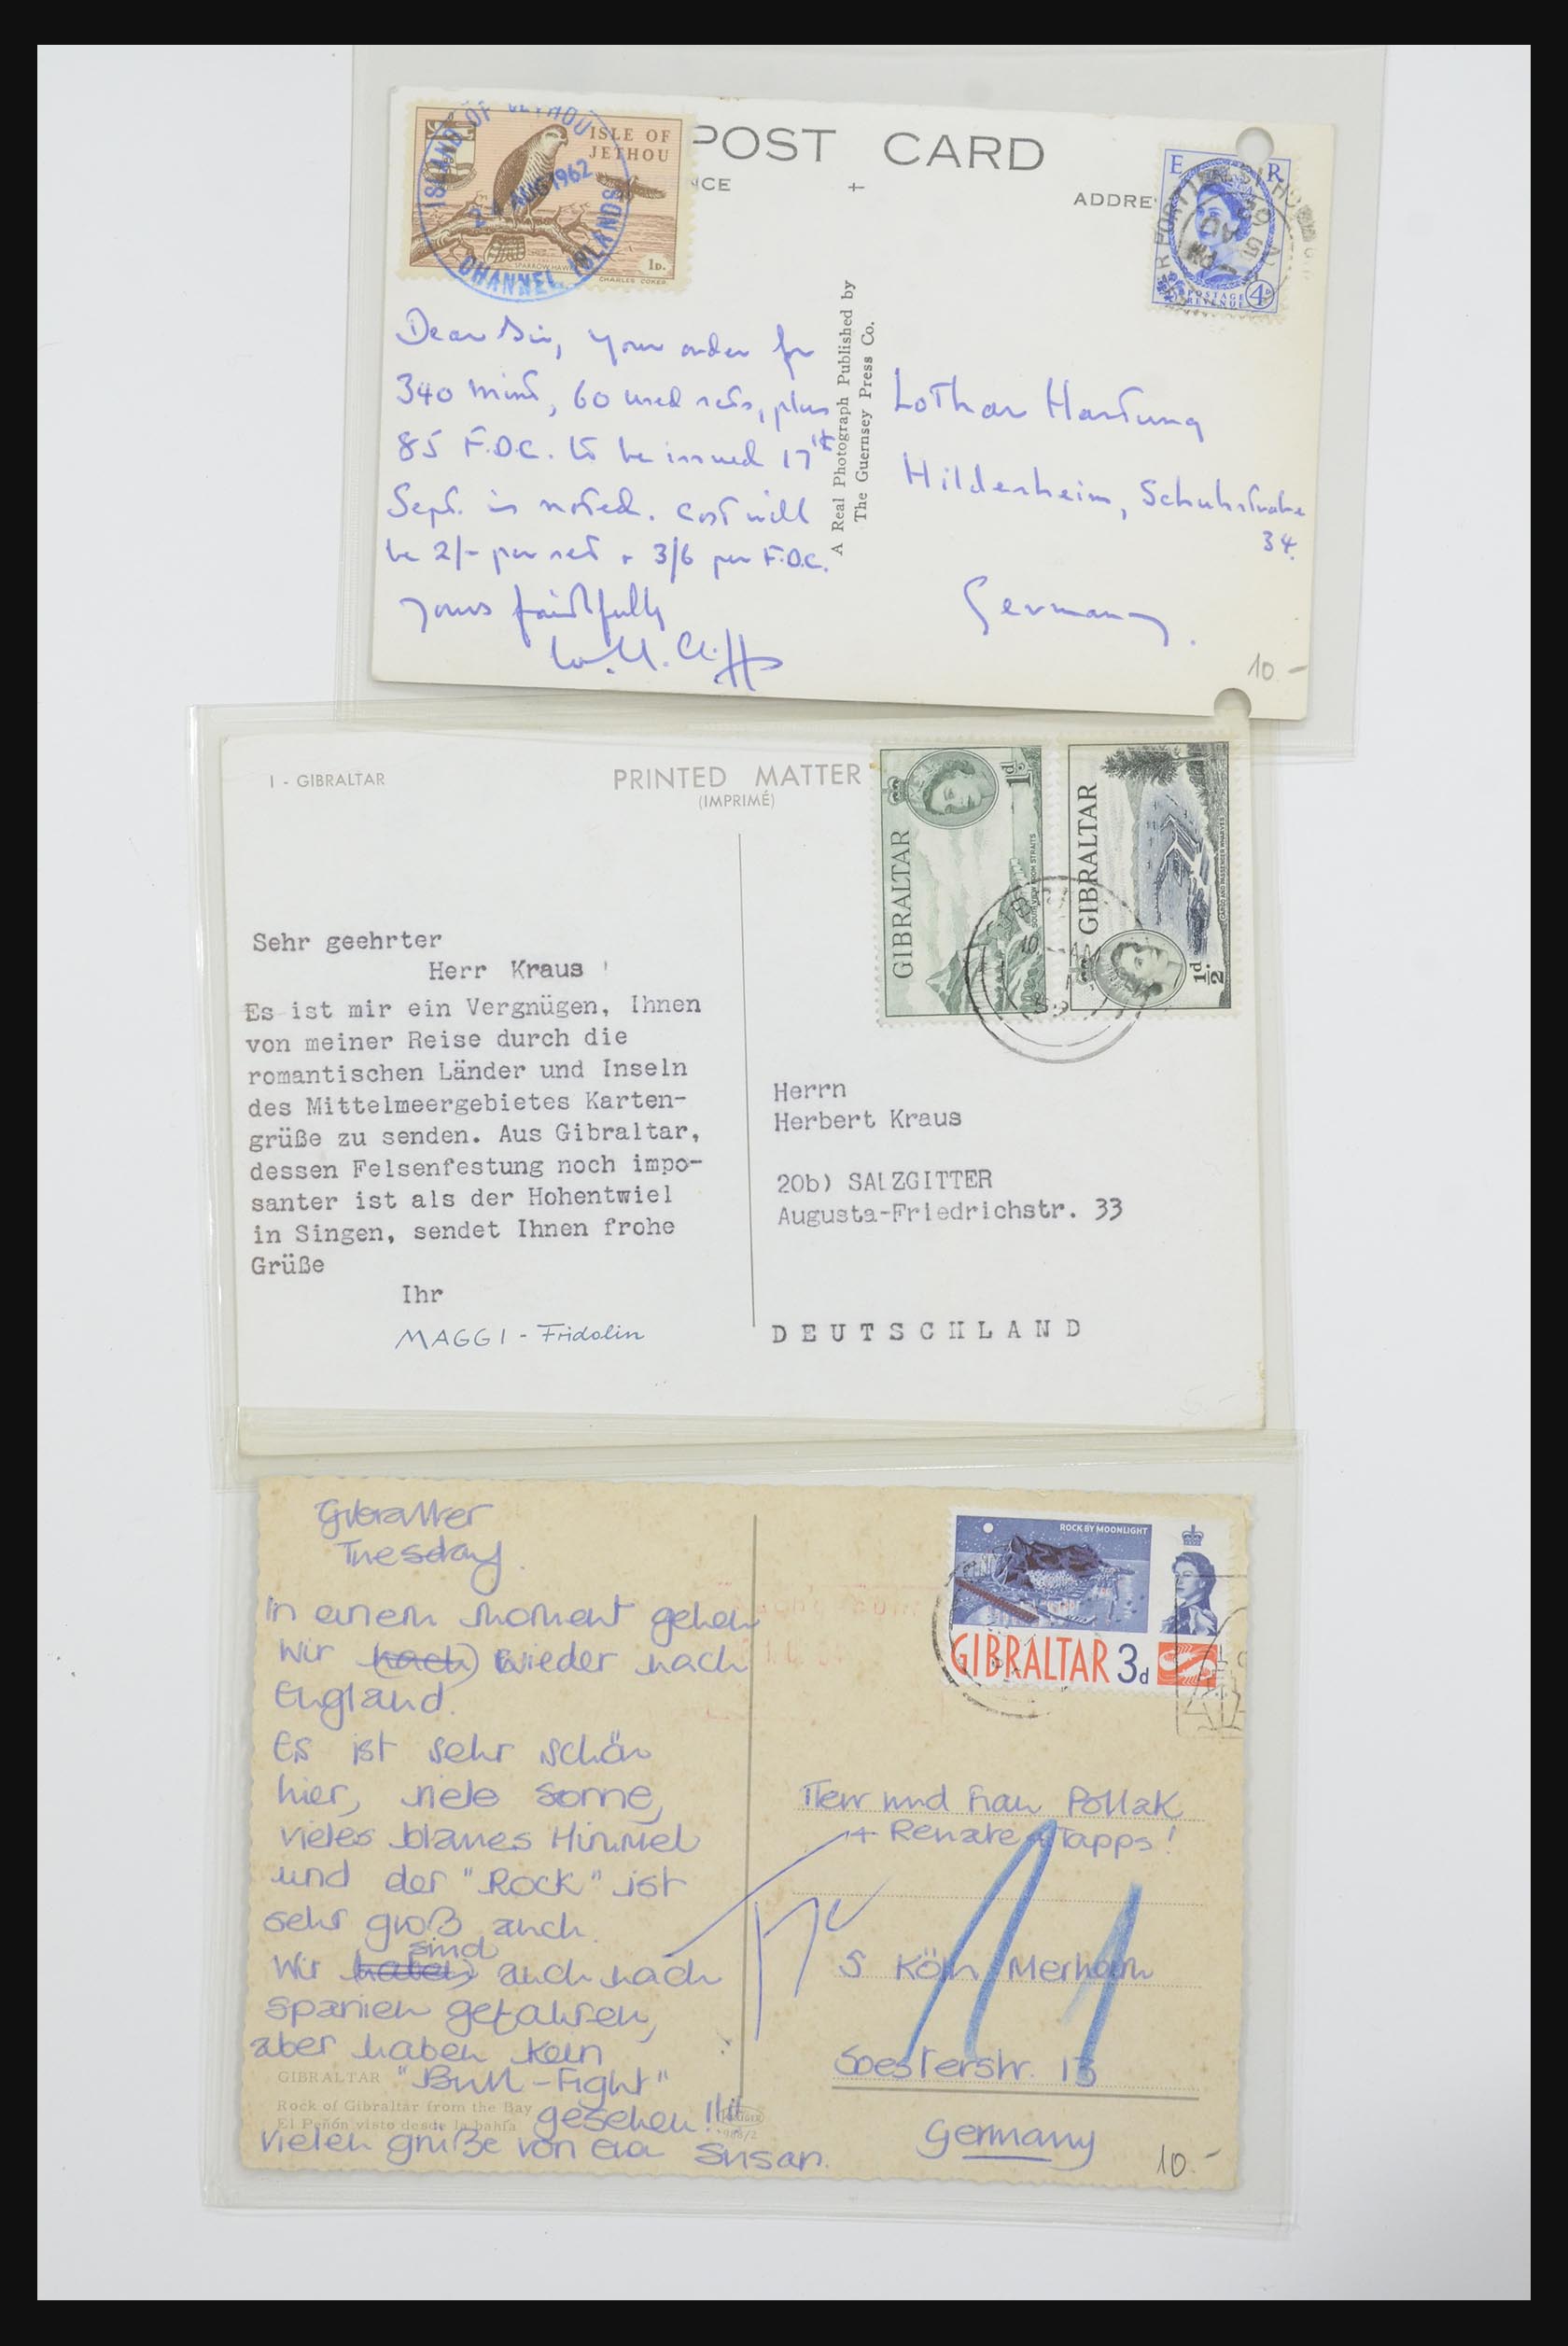 POST CARD
ADDRE
ISLAND OF JETHOU
ISLE OF
JETHOU
2 AUG 1962
CHANNEL ISLANDS
SPARROW HAWK
1D.
CHARLES COKER
E R
POSTAGE
REVENUE
4D
Dear Sir, your order for
340 mint, 60 used sets, plus
85 F.D.C. to be issued 17th
Sept. is noted. Cost will
be 2/- per set + 3/6 per F.D.C.
Yours faithfully
A Real Photograph Published by
The Guernsey Press Co.
Lothar Hartung
Hildesheim, Schuhstrabe
34.
Germany.
10.-
I - GIBRALTAR
PRINTED MATTER
(IMPRIMÉ)
GIBRALTAR
1d.
SOUTH VIEW FROM STRAITS
GIBRALTAR
½d.
CARGO AND PASSENGER WHARVES
Sehr geehrter
Herr Kraus !
Es ist mir ein Vergnügen, Ihnen
von meiner Reise durch die
romantischen Länder und Inseln
des Mittelmeergebietes Karten-
grüße zu senden. Aus Gibraltar,
dessen Felsenfestung noch impo-
santer ist als der Hohentwiel
in Singen, sendet Ihnen frohe
Grüße
Ihr
MAGGI - Fridolin
Herrn
Herbert Kraus
20b) SALZGITTER
Augusta-Friedrichstr. 33
DEUTSCHLAND
Gibralter
Tuesday.
In einem Moment gehen
Wir (nach) wieder nach
England.
Es ist sehr schön
hier, viele sonne,
vieles blaues Himmel
und der "Rock" ist
sehr groß auch.
sind
Wir haben auch nach
spanien gefahren,
aber haben kein
"Bull-Fight"
gesehen!!!!
vielen grüße von eva Susan.
GIBRALTAR
Rock of Gibraltar from the Bay
El Peñón visto desde la bahía
ROCK BY MOONLIGHT
GIBRALTAR 3d
Herr und Frau Pollak
+ Renate + Tapps!
5 Köln Merheim
Soesterstr. 13
Germany
10.-